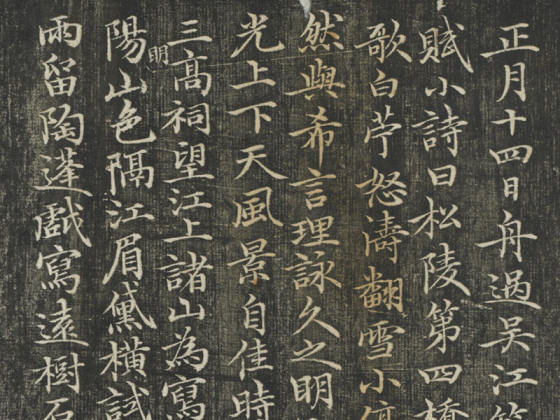 正月十四日舟過吴江第
賦小詩曰松陵第四橋
歌白苧怒濤翻雪小停
然與希言理詠久之明
光上下天風景自佳時
三高祠望江上諸山為寫
明
陽山色隔江眉黛橫試
雨留陶蓬戲寫遠樹石